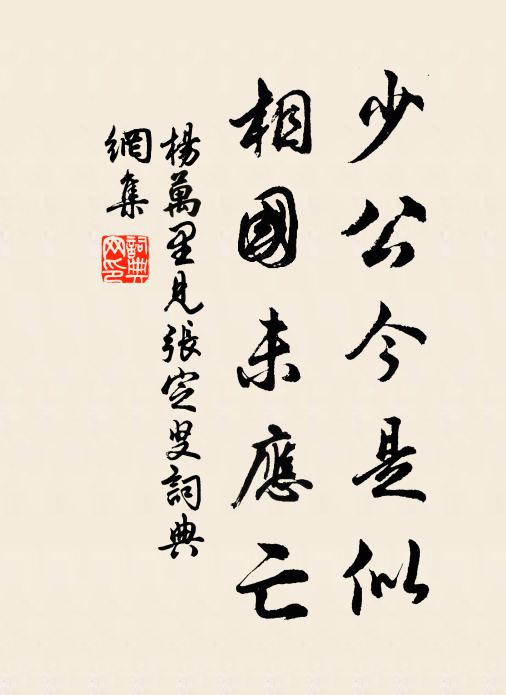 少公今是似
相國未應亡
楊萬里見張定叟詞典
網集
詞典
网印